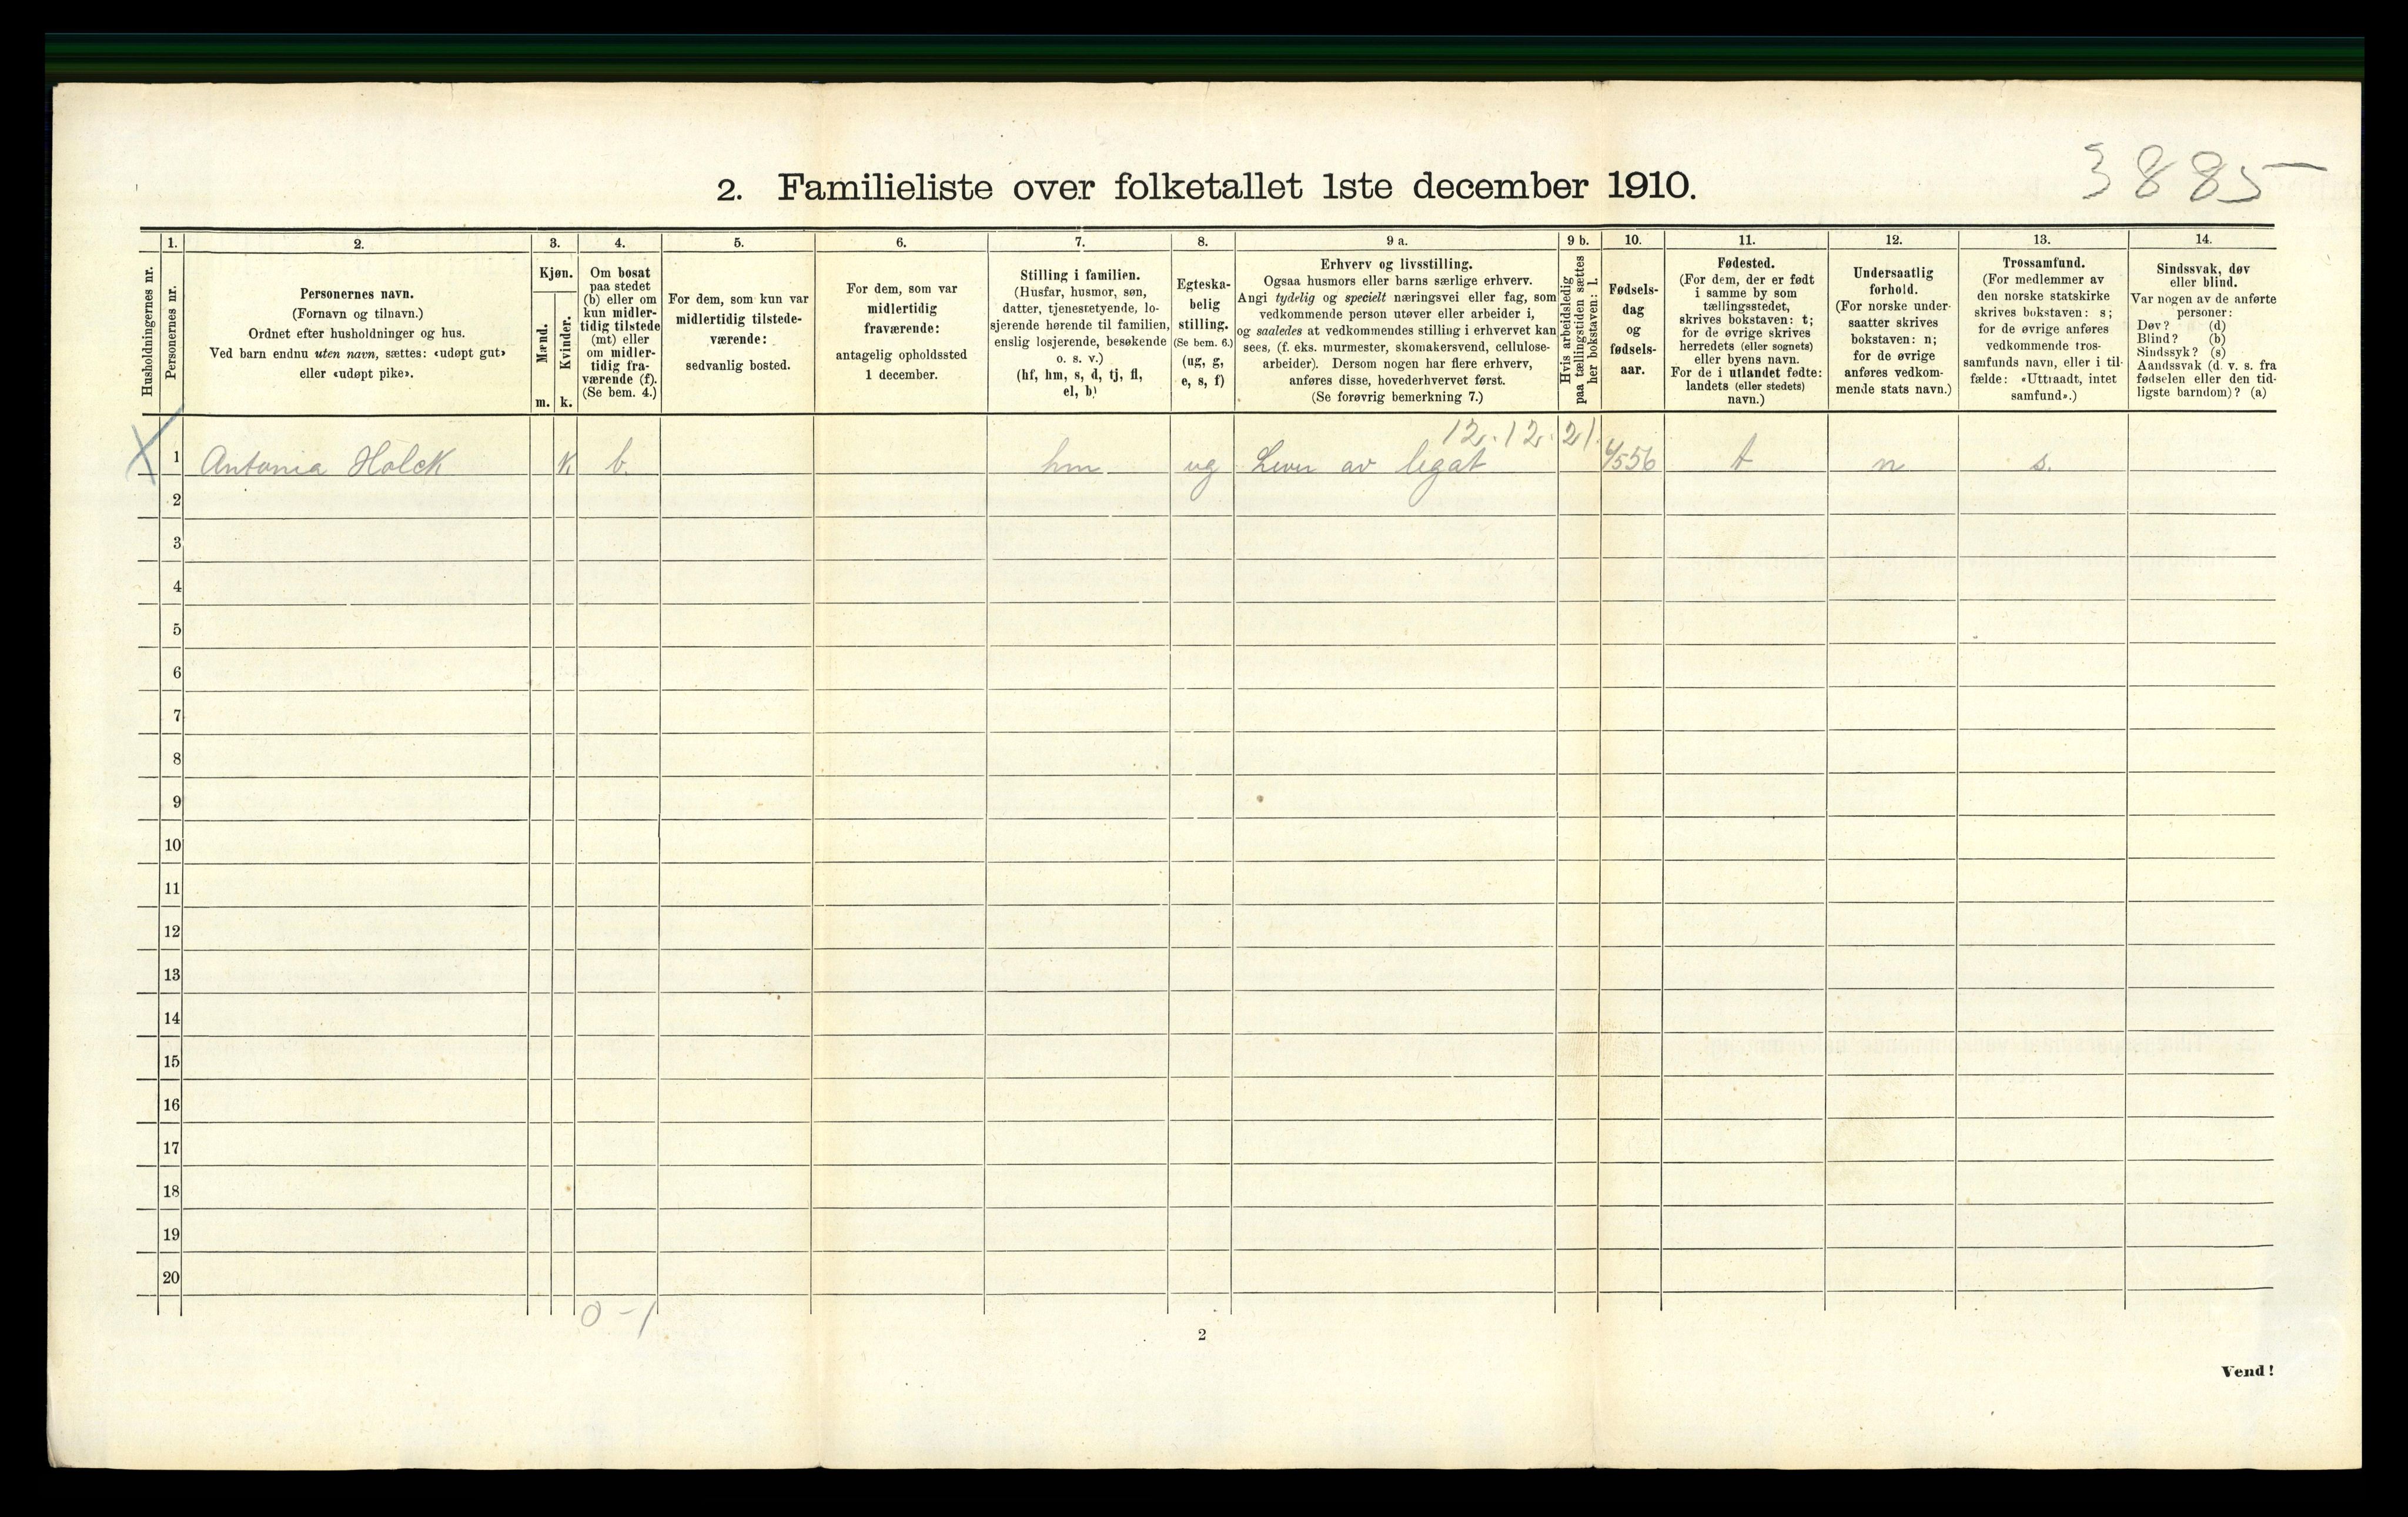 3885
2. Familieliste over folketallet 1ste december 1910.
Husholdningernes nr.
1.
Personernes nr.
2.
Personernes navn.
(Fornavn og tilnavn.)
Ordnet efter husholdninger og hus.
Ved barn endnu uten navn, sættes: «udøpt gut»
eller «udøpt pike».
3.
Kjøn.
Mænd.
m.
Kvinder.
k.
4.
Om bosat
paa stedet
(b) eller om
kun midler-
tidig tilstede
(mt) eller
om midler-
tidig fra-
værende (f).
(Se bem. 4.)
5.
For dem, som kun var
midlertidig tilstede-
værende:
sedvanlig bosted.
6.
For dem, som var
midlertidig
fraværende:
antagelig opholdssted
1 december.
7.
Stilling i familien.
(Husfar, husmor, søn,
datter, tjenestetyende, lo-
sjerende hørende til familien,
enslig losjerende, besøkende
o. s. v.)
(hf, hm, s, d, tj, fl,
el, b)
8.
Egteska-
belig
stilling.
(Se bem. 6.)
(ug, g,
e, s, f)
9 a.
Erhverv og livsstilling.
Ogsaa husmors eller barns særlige erhverv.
Angi tydelig og specielt næringsvei eller fag, som
vedkommende person utøver eller arbeider i,
og saaledes at vedkommendes stilling i erhvervet kan
sees, (f. eks. murmester, skomakersvend, cellulose-
arbeider). Dersom nogen har flere erhverv,
anføres disse, hovederhvervet først.
(Se forøvrig bemerkning 7.)
9 b.
Hvis arbeidsledig
paa tællingstiden sættes
her bokstaven: l.
10.
Fødsels-
dag
og
fødsels-
aar.
11.
Fødested.
(For dem, der er født
i samme by som
tællingsstedet,
skrives bokstaven: t;
for de øvrige skrives
herredets (eller sognets)
eller byens navn.
For de i utlandet fødte:
landets (eller stedets)
navn.)
12.
Undersaatlig
forhold.
(For norske under-
saatter skrives
bokstaven: n;
for de øvrige
anføres vedkom-
mende stats navn.)
13.
Trossamfund.
(For medlemmer av
den norske statskirke
skrives bokstaven: s;
for de øvrige anføres
vedkommende tros-
samfunds navn, eller i til-
fælde: «Uttraadt, intet
samfund».)
14.
Sindssvak, døv
eller blind.
Var nogen av de anførte
personer:
Døv? (d)
Blind? (b)
Sindssyk? (s)
Aandssvak (d. v. s. fra
fødselen eller den tid-
ligste barndom)? (a)
12.12.21.
X 1 Antonia Holck k b. hm ug Lever av legat 4/5 56 t n s.
2
3
4
5
6
7
8
9
10
11
12
13
14
15
16
17
18
19
20
0-1
2
Vend!